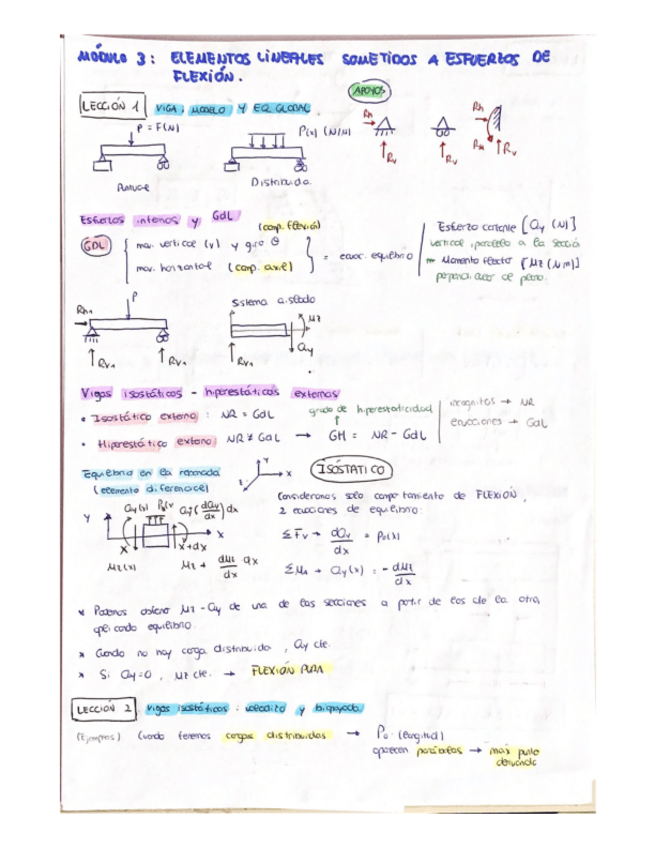 MÓDULO 3: ELEMENTOS LINEALES SOMETIDOS A ESFUERZOS DE
FLEXIÓN.
APOYOS
LECCIÓN 1 VIGA: MODELO Y EQ GLOBAL
P = F(N)
P(x) (N/m)
Rh
Rv
Rv
Rh
RM
Rv
Puntual
Distribuida
Esfuerzos internos y GdL
(comp. flexión)
GDL
mov. vertical (v) y giro θ
mov. horizontal (comp. axial)
= ecuac. equilibrio
Esfuerzo cortante [Qy (N)]
vertical, paralelo a la sección
Momento flector [Mz (Nm)]
perpendicular al plano.
P
Rh1
Rv1
Rv1
Sistema aislado
Mz
Qy
Rv1
Vigas isostáticas - hiperestáticas externas
• Isostático externo: NR = GdL
• Hiperestático externo: NR ≠ GdL → GH = NR - GdL
grado de hiperestaticidad
incógnitas → NR
ecuaciones → GdL
Equilibrio en la rebanada
(elemento diferencial)
Y
X
Z
ISOSTÁTICO
Consideramos solo comportamiento de FLEXIÓN,
2 ecuaciones de equilibrio:
Qy(x)
Qy+(dQy/dx)dx
Y
X
X
X+dx
Mz(x)
Mz + dMz/dx dx
ΣFv → dQy/dx = Po(x)
ΣMA → Qy(x) = - dMz/dx
* Podemos obtener Mz - Qy de una de las secciones a partir de los de la otra,
aplicando equilibrio.
* Cuando no hay carga distribuida, Qy cte.
* Si Qy=0, Mz cte. → FLEXIÓN PURA
LECCIÓN 2 Vigas isostáticas: voladizo y biapoyada
(Ejemplos) Cuando tenemos cargas distribuidas → Po·(longitud)
aparecen parábolas → máx punto
derivando